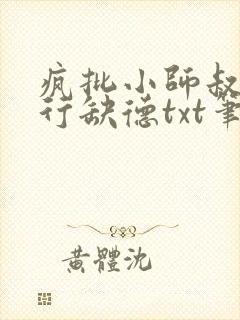 疯批小師叔
行缺德txt筆
黃體沈